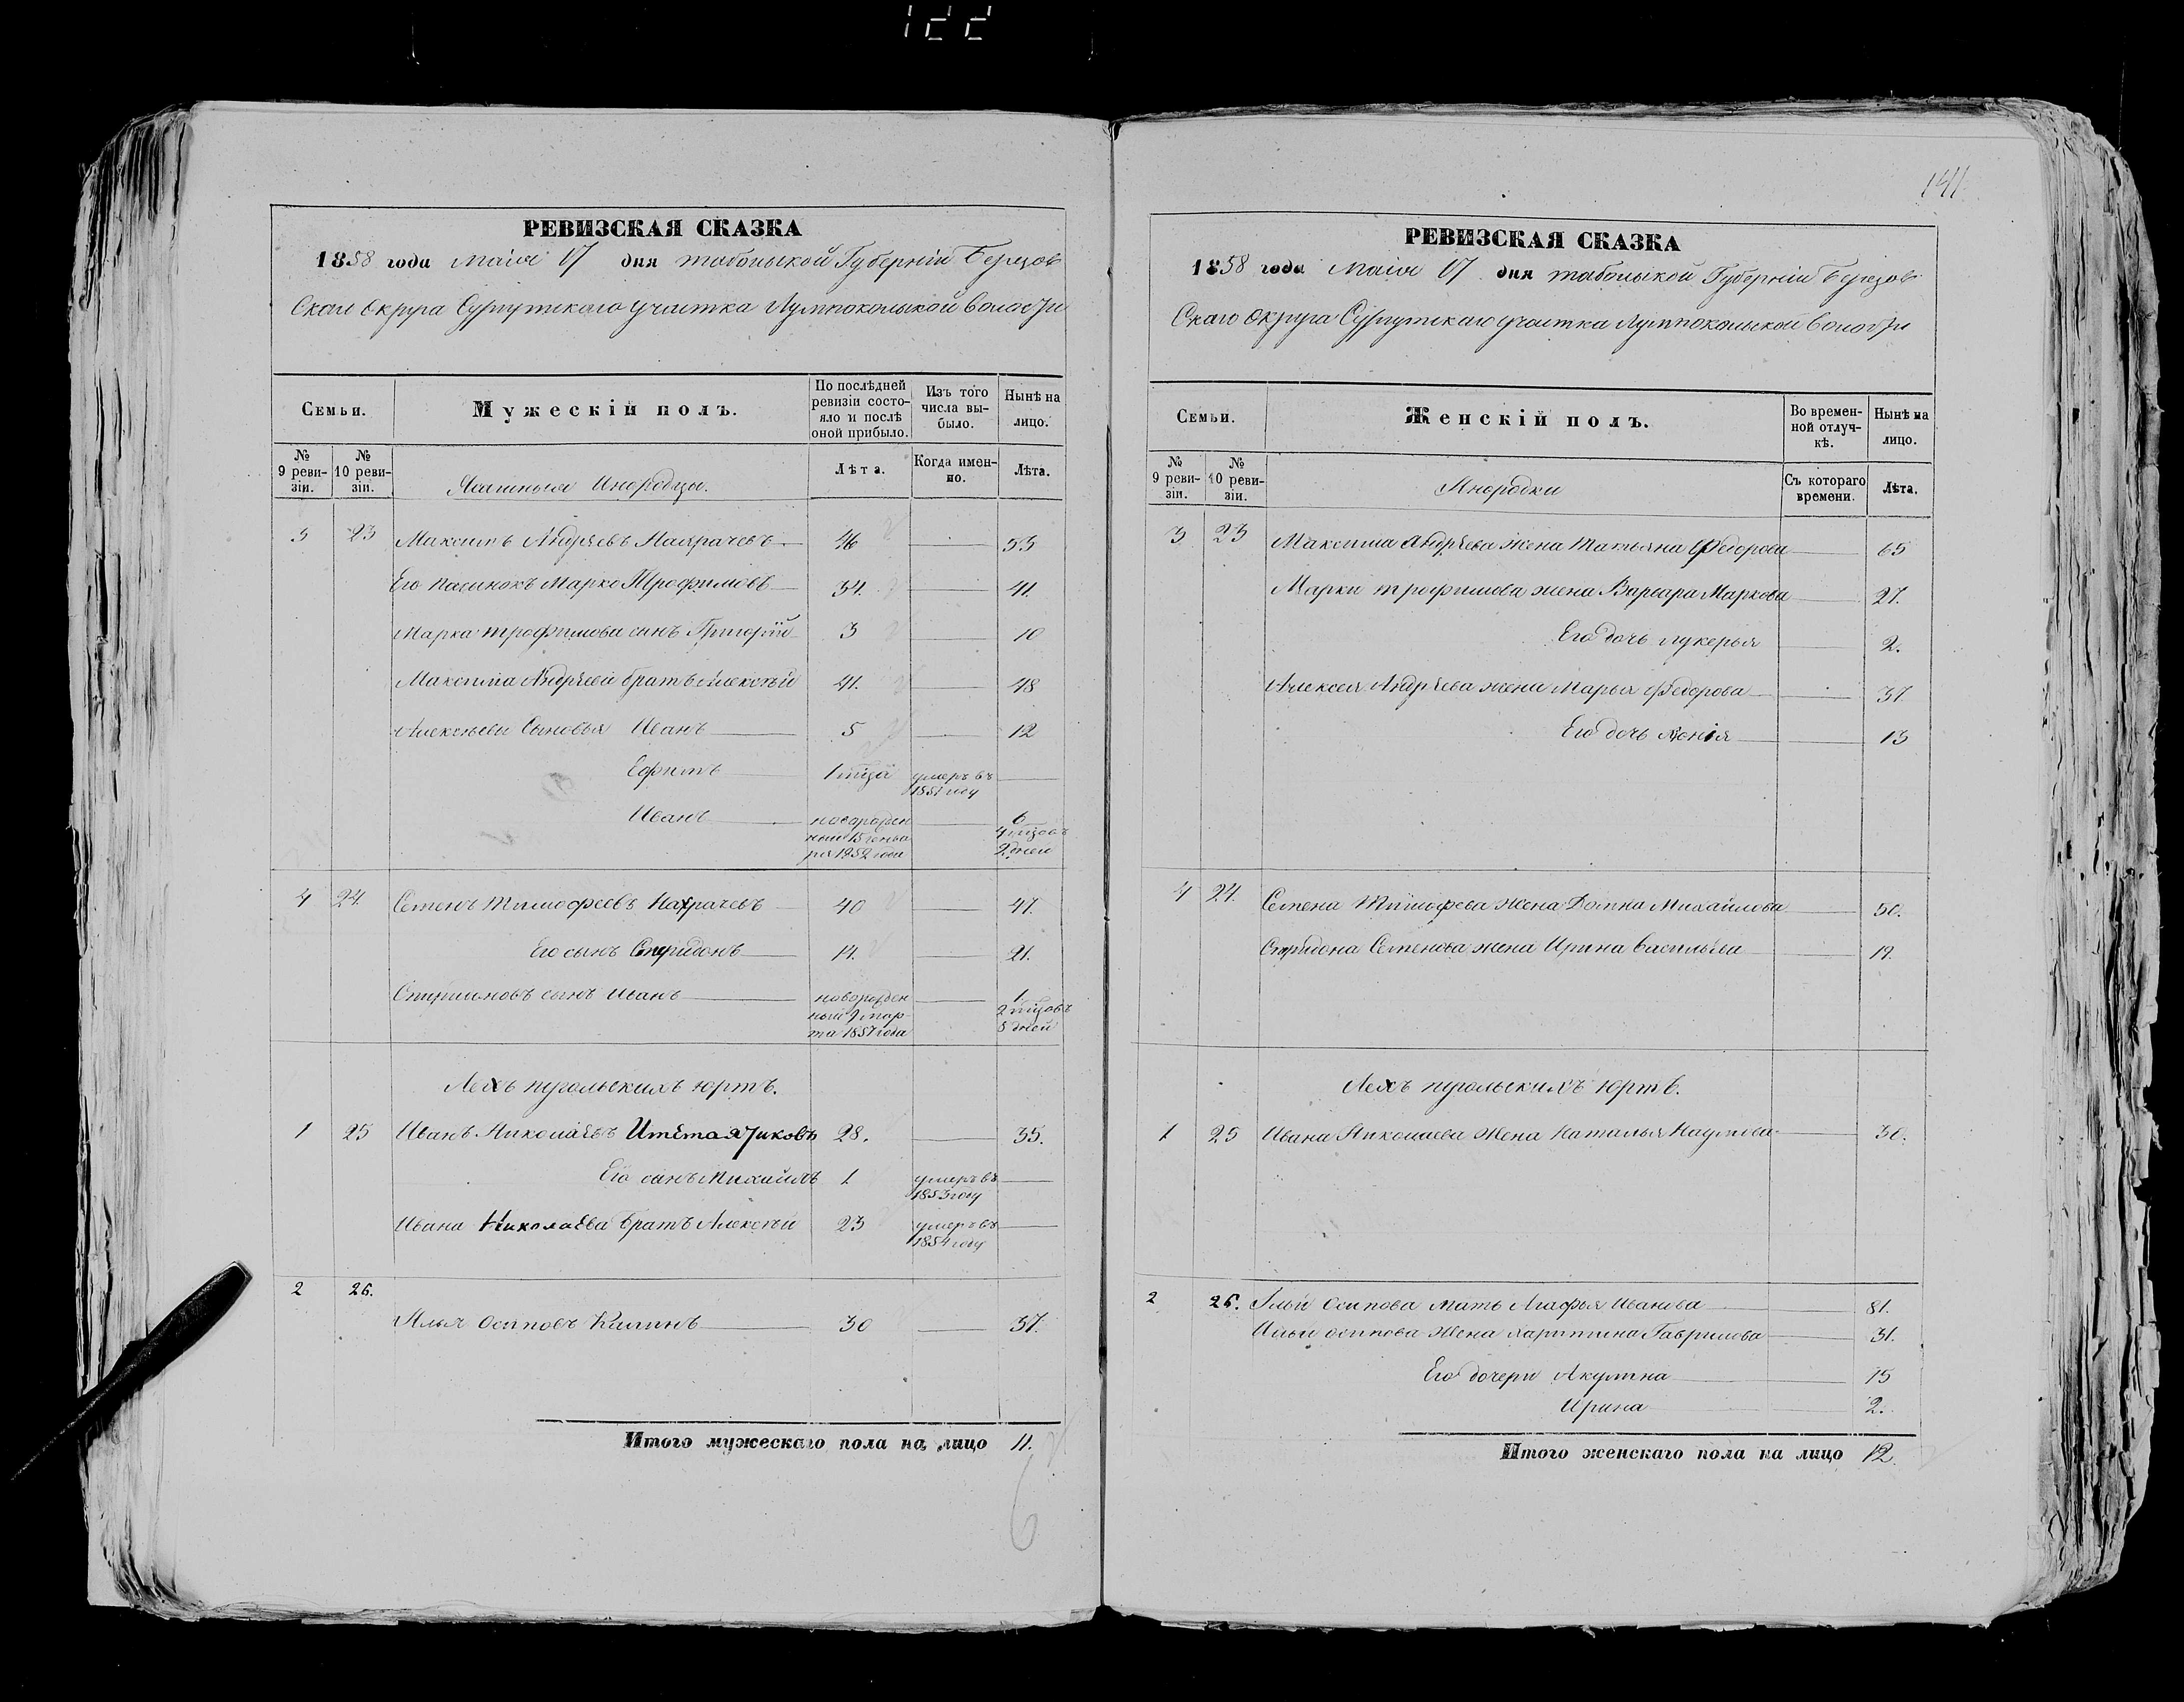 122
РЕВИЗСКАЯ СКАЗКА
1858 года Маія 17 дня тобольской Губерніи Березов
Скаго округа Сургутскаго участка Лумпокольской волости
Семьи.
Мужескій полъ.
По послѣдней ревизіи состояло и послѣ оной прибыло.
Изъ того числа выбыло.
Нынѣ на лицо.
№ 9 ревизіи.
№ 10 ревизіи.
Ясашныя Инородцы.
Лѣта.
Когда именно.
Лѣта.
3 23 Максимъ Андреевъ 46 53
Его пасынокъ Марко Трофимовъ 34. 41.
Марка трофимова сынъ Григорій 3 10
Максима Андреева братъ Алексѣй 41. 48
Алексѣевы Сыновья Иванъ 5 12
Ефимъ умеръ въ
1851 году
Иванъ новорожден 6
ный 15 генва 4 мцовъ
ря 1852 года 2 дней
4 24. Семенъ Тимофеевъ Натрачевъ 40 47.
Его сынъ Спиридонъ 14. 21.
сынъ Иванъ новорожден 1
ный 9 мар 2 мцовъ
та 1857 года 8 дней
юртъ.
1 25 Иванъ Николаевъ 28. 35.
Его сынъ Михайлъ 1 умеръ въ
1853 году
Ивана Николаева братъ Алексѣй 23 умеръ въ
1854 году
2 26.
Илья Осиповъ Калинъ 30 37.
Итого мужескаго пола на лицо 11.
6
141
РЕВИЗСКАЯ СКАЗКА
1858 года Маія 17 дня тобольской Губерніи Березов
Скаго округа Сургутскаго участка Лумпокольской волости
Семьи.
Женскій полъ.
Во временной отлучкѣ.
Нынѣ на лицо.
№ 9 ревизіи.
№ 10 ревизіи.
Инородки
Съ котораго времени.
Лѣта.
3 23 Максима Андреева жена Татьяна Федорова 65
Марки трофимова жена Варвара Маркова 27.
Его дочь лукерья 2.
Алексея Андреева жена Марья Федорова 37.
Его дочь 13
4 24. Семена Тимофева жена Домна Михайлова 50.
Спиридона Семенова жена Ирина Васильева 19.
юртъ.
1 25 Ивана Николаева жена Наталья Наумова 30.
2 26. Ильи Осипова мать Агафья Иванова 81.
Ильи осипова жена харитина Гаврилова 31.
Его дочери Акулина 15
Ирина 2.
Итого женскаго пола на лицо 12.